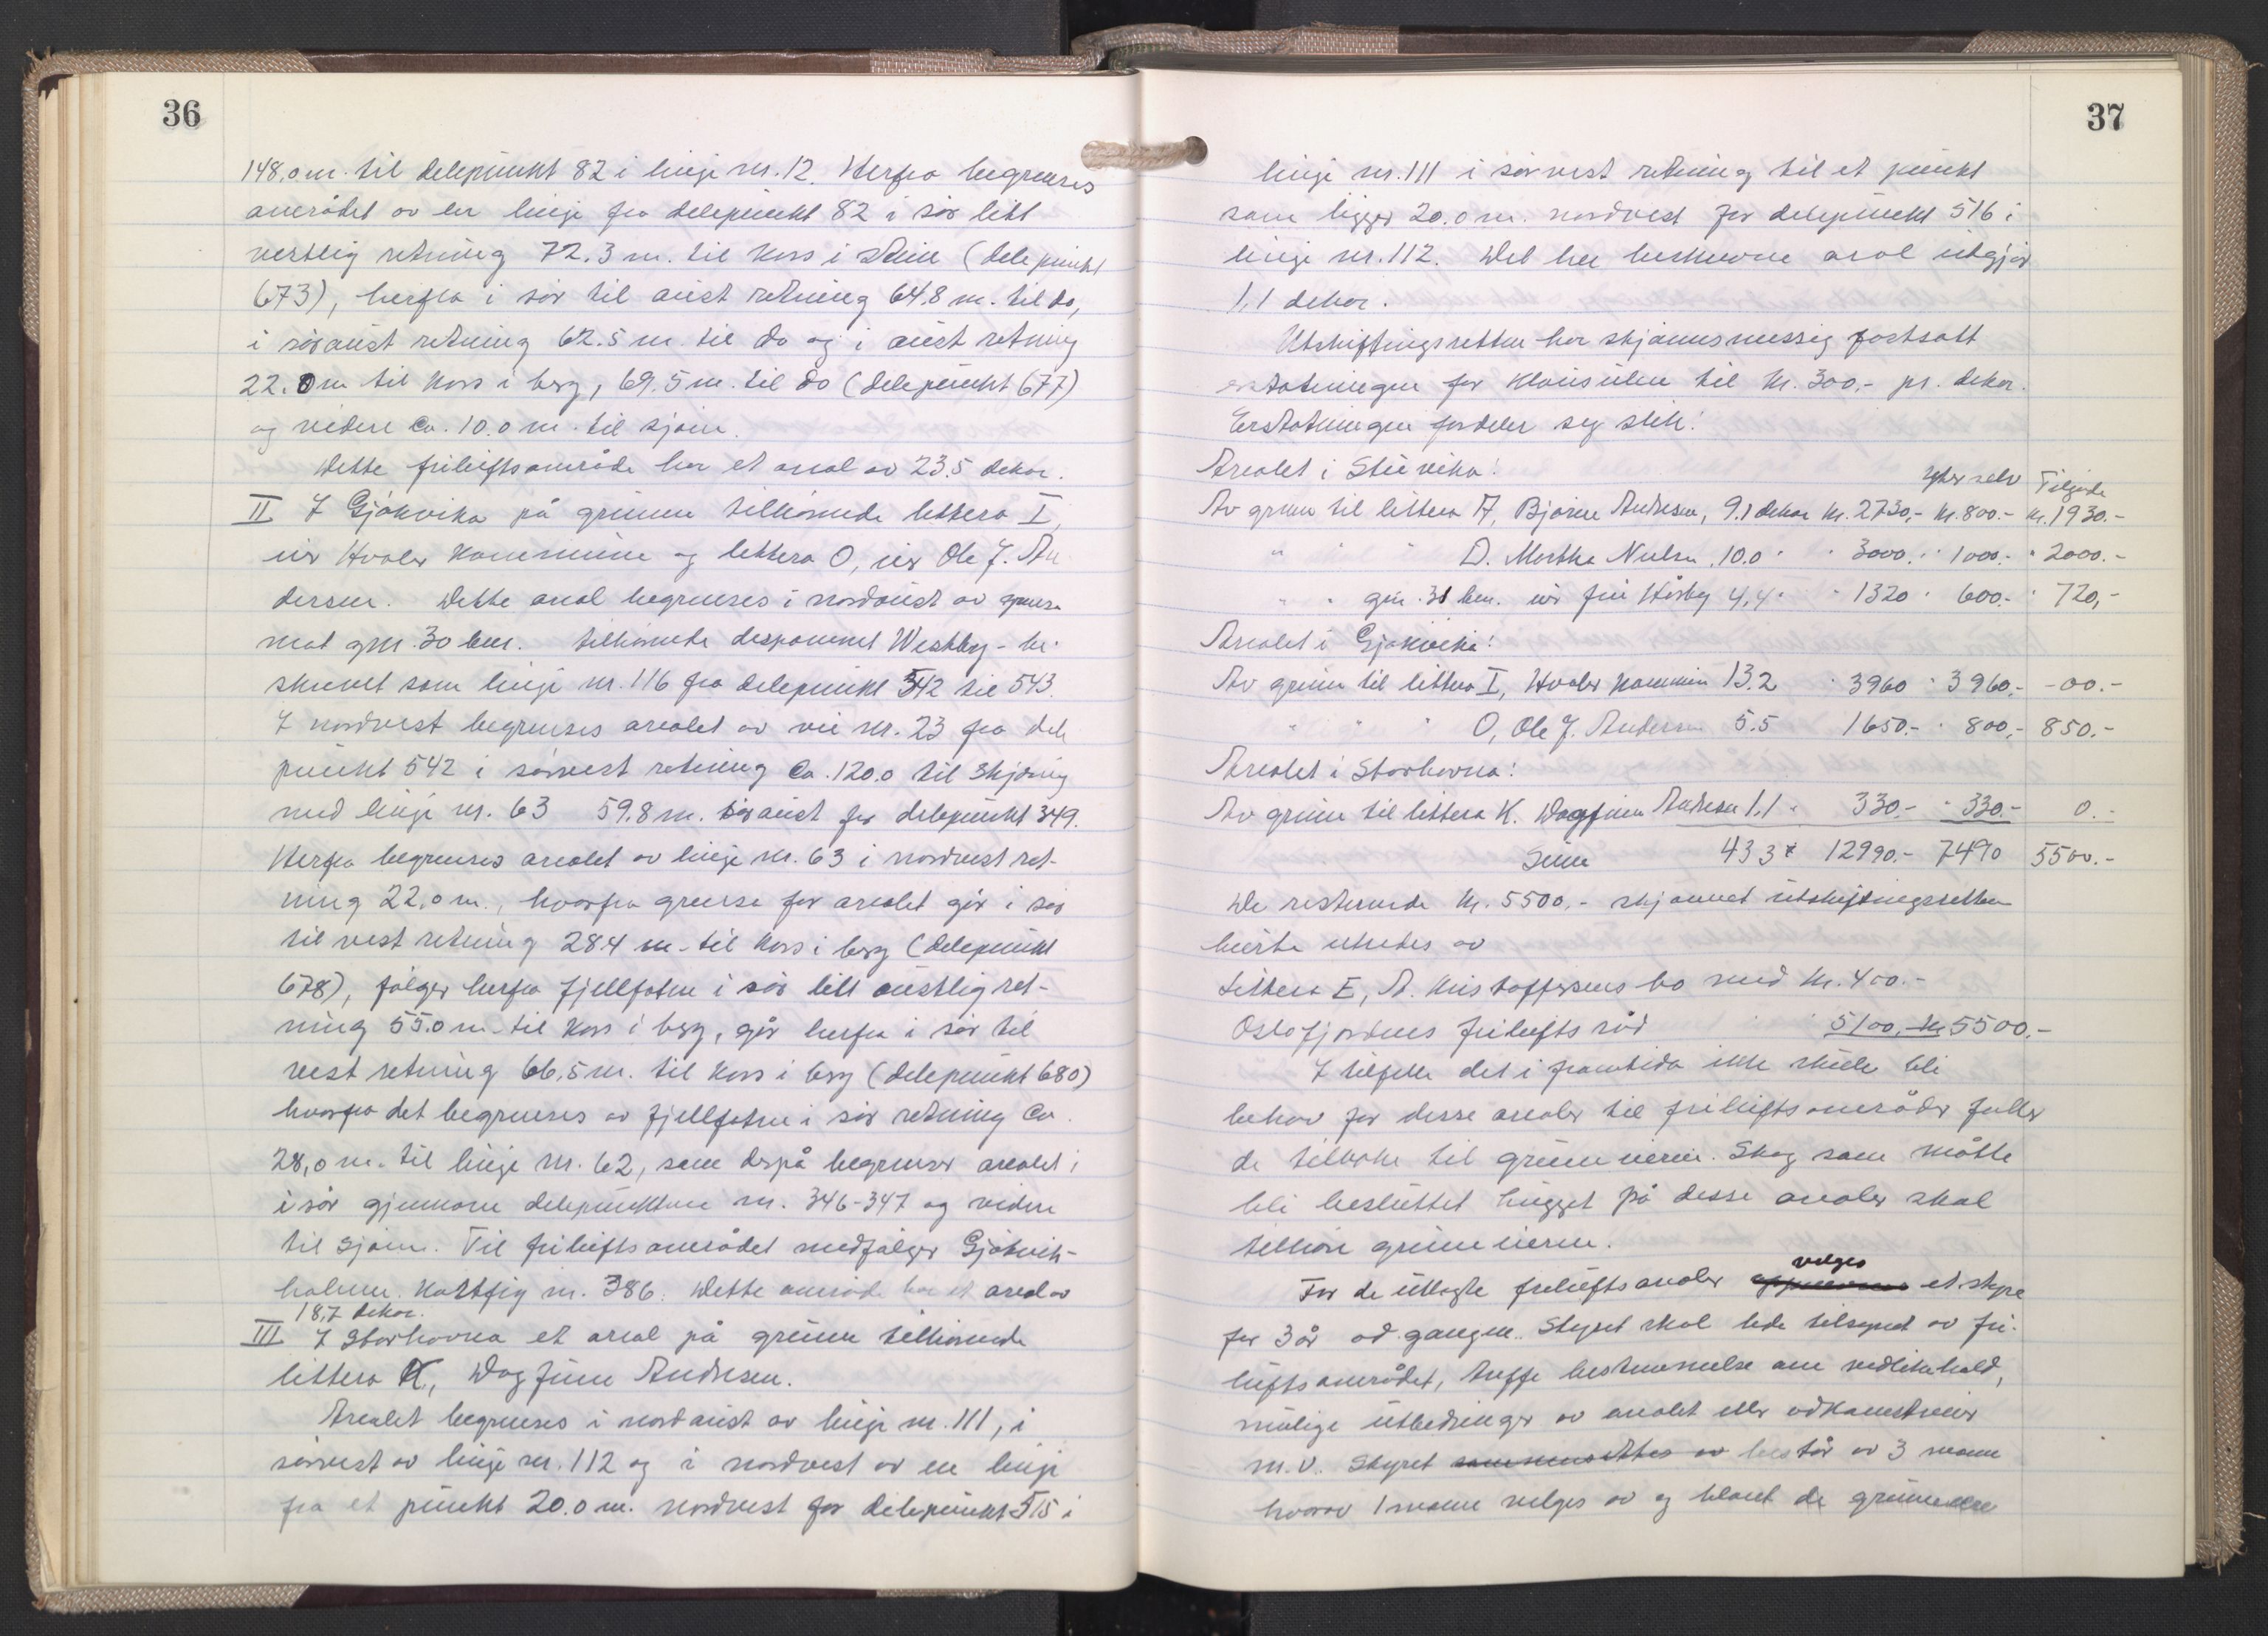 36
148,0 m. til delepunkt 82 i linje nr. 12. Herfra begrenses
området av en linje fra delepunkt 82 i sør litt
vestlig retning 72.3 m. til kors i stein (delepunkt
673), herfra i sør til aust retning 64.8 m. til do,
i søraust retning 62.5 m. til do og i aust retning
22.0 m til kors i berg, 69.5 m. til do (delepunkt 677)
og videre ca. 10.0 m. til sjøen.
Dette friluftsområde har et areal av 23.5 dekar.
II I Gjøkvika på grunn tilhørende littera I,
Hvaler kommune og littera O, Ole J. An
dersen. Dette areal begrenses i nordaust av grense
mot gnr. 30 bnr. tilhørende Westby - be-
skrevet som linje nr. 116 fra delepunkt 542 til 543.
I nordvest begrenses arealet av vei nr. 23 fra dele
punkt 542 i sørvest retning ca. 120.0 til skjæring
med linje nr. 63 59.8 m. søraust for delepunkt 349.
Herfra begrenses arealet av linje nr. 63 i nordvest ret-
ning 22,0 m., hvorfra grense for arealet går i sør
til vest retning 28.4 m. til kors i berg (delepunkt
678), følger herfra fjellfoten i sør litt austlig ret-
ning 55.0 m. til kors i berg, går herfra i sør til
vest retning 66,5 m. til kors i berg (delepunkt 680)
hvorfra det begrenses av fjellfoten i sør retning ca.
28,0 m. til linje nr. 62, som derpå begrenser arealet i
i sør gjennom delepunktene nr. 346-347 og videre
til sjøen. Til friluftsområdet medfølger Gjøkvik-
holmen. Kartfig nr. 386. Dette område har et areal av
18,7 dekar.
III I Storhovna et areal på grunn tilhørende
littera K, Dagfinn Andresen.
Arealet begrenses i nordaust av linje nr. 111, i
sørvest av linje nr. 112 og i nordvest av en linje
fra et punkt 20.0 m. nordvest for delepunkt 515 i
37
linje nr. 111 i sørvest retning til et punkt
som ligger 20.0 m. nordvest for delepunkt 516 i
linje nr. 112. Det her beskrevne areal utgjør
1,1 dekar.
Utskiftingsretten har skjønnsmessig fastsatt
erstatningen for klausulen til kr. 300,- pr. dekar.
Erstatningen fordeler seg slik:
Arealet i Stuevika:
Yter selv Tilgode
Av grunn til littera A, Bjarne Andresen, 9.1 dekar kr. 2730,- kr. 800.- kr. 1930.-
" " " D. Marthe Nielsen, 10.0 " " 3000.- " 1000.- " 2000.-
" " gnr. 31 bnr. 4,4 " " 1320 " 600.- " 720,-
Arealet i Gjøkvika:
Av grunn til littera I, Hvaler kommune 13.2 " 3960 " 3960.- -00.-
" " " O, Ole J. Andersen 5.5 1650.- " 800,- 850.-
Arealet i Storhovna:
Av grunn til littera K. Dagfinn Andresen 1,1 " 330.- " 330.- 0.-
Sum 43 3 12990.- 7490 5500.-
De resterende kr. 5500,- skjønnet utskiftingsretten
burte utredes av
Littera E, A. Kristoffersens bo med kr. 400.-
Oslofjordens friluftsråd " " 5100,- kr 5500.-
I tilfelle det i framtida ikke skulle bli
behov for disse arealer til friluftsområder faller
de tilbake til grunneieren. Skog som måtte
bli besluttet hugget på disse arealer skal
tilhøre grunneieren.
velges
For de utlagte friluftsarealer oppnevnes et styre
for 3 år ad gangen. Styret skal lede tilsynet av fri-
luftsområdet, treffe bestemmelse om vedlikehold,
mulige utbedringer av arealet eller adkomstveier
m.v. Styret sammensettes av består av 3 menn
hvorav 1 mann velges av og blant de grunneiere